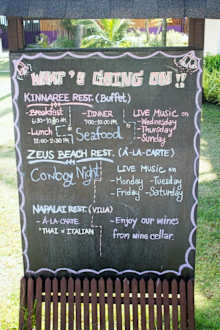 WHAT'S GOING ON!!
KINNAREE REST. (Buffet)
-Breakfast
-Lunch
-DINNER
Seafood
LIVE MUSIC on
-Wednesday
-Thursday
-Sunday
ZEUS BEACH REST. (À-LA-CARTE)
Cowboy Night
LIVE MUSIC on
-Monday -Tuesday
-Friday -Saturday
NAPALAI REST. (VILLA)
-À-LA-CARTE
*THAI & ITALIAN
-Enjoy our wines
from wine cellar.